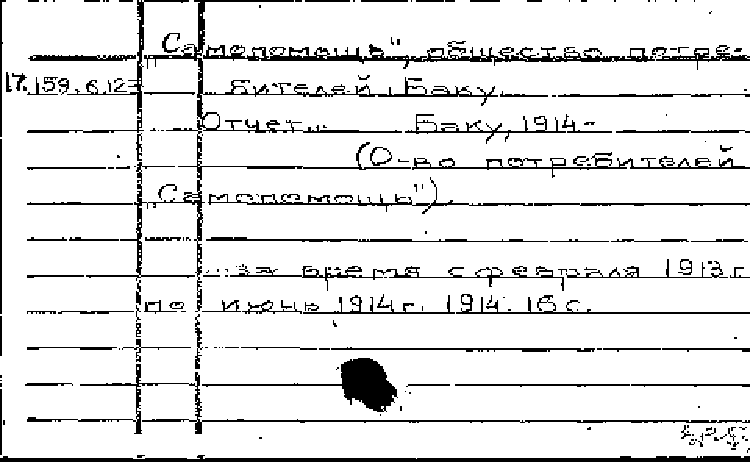 „Самопомощь", общество потре-
17.159.6.12= бителей, Баку.
Отчет... Баку, 1914-
(О-во потребителей
„Самопомощь").
...за время с февраля 1913 г.
по июнь 1914 г. 1914. 16 с.